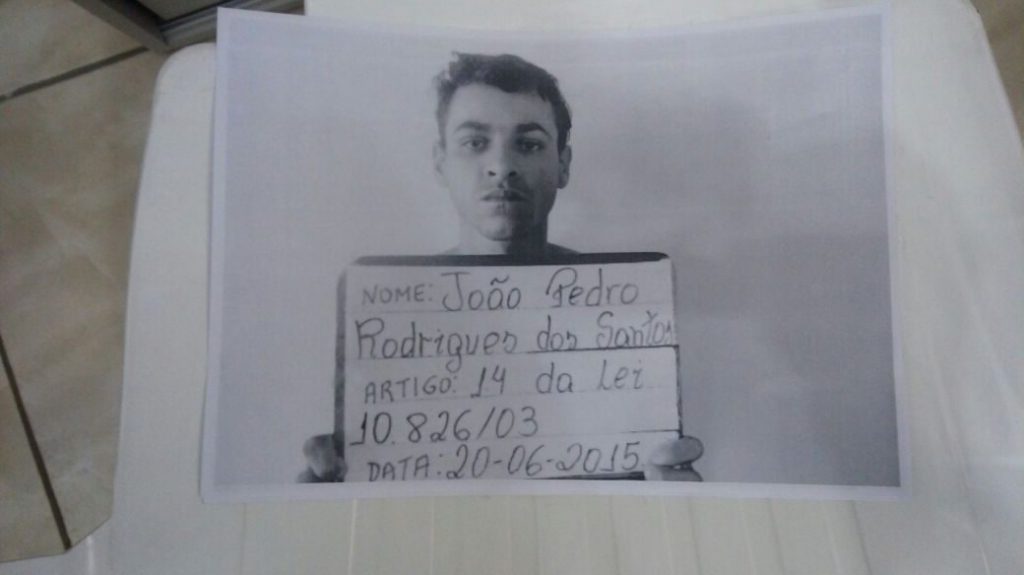 NOME: João Pedro
Rodrigues dos Santos
ARTIGO: 14 da Lei
10.826/03
DATA: 20-06-2015